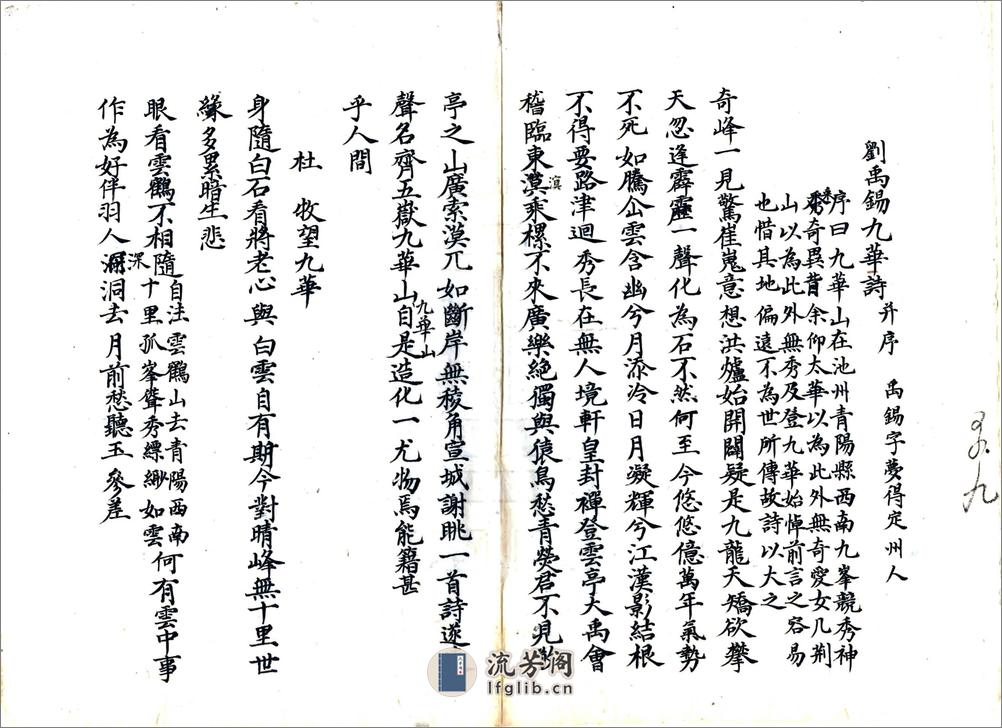 劉禹錫九華詩 并序 禹錫字夢得定州人
序曰九華山在池州青陽縣西南九峯競秀神
采奇異昔余仰太華以為此外無奇愛女几荆
山以為此外無秀及登九華始悼前言之容易
也惜其地偏遠不為世所傳故詩以大之
奇峰一見驚崔嵬意想洪爐始開闢疑是九龍天矯欲攀
天忽逢霹靂一聲化為石不然何至今悠悠億萬年氣勢
不死如騰仚雲含幽兮月添冷日月凝輝兮江漢影結根
不得要路津迴秀長在無人境軒皇封禪登雲亭大禹會
稽臨東溟乘樏不來廣樂絕獨與猿鳥愁青熒君不見敬
亭之山廣索漠兀如斷岸無稜角宣城謝眺一首詩遂
聲名齊五嶽九華山九華山自是造化一尤物焉能籍甚
乎人間
杜 牧望九華
身隨白石看將老心與白雲自有期今對晴峰無十里世
緣多累暗生悲
眼看雲鶴不相隨自注雲鶴山去青陽西南十里孤峯聳秀縹緲如雲何有雲中事
作為好伴羽人深洞去月前愁聽玉參差
五九
流芳阁
lfglib.cn